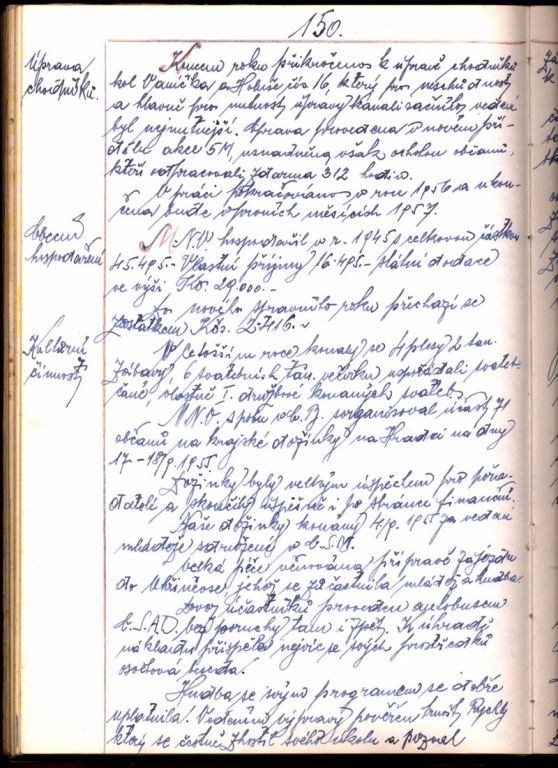 150.
Úprava
chodníků.
Koncem roku přikročeno k úpravě chodníků
kol Vaníčka a Holuše čís 16, který pro neschůdnost
a hlavně pro nutnost úpravy kanalisačního vedení
byl nejnutnější. Úprava provedena v novém pří-
dělu akce 5M, usnadněna však ochotou občanů,
kteří odpracovali zdarma 312 hodin.
V práci pokračováno v roce 1956 a ukon-
čena bude v prvních měsících 1957.
Obecní
hospodaření
M.N.V. hospodařil v r. 1945 s celkovou částkou
45.495.- Vlastní příjmy 16.495.- státní dotace
ve výši Kčs. 29.000.-
Do nového správního roku přechází se
zůstatkem Kčs. 2.416.-
Kulturní
činnost
V letošním roce konaly se 4 plesy 2 tan.
zábavy 6 svatebních tan. večírků uspořádali svateb-
čané, vlastně I. družbové konaných svateb.
M.N.V. spolu s O.B. zorganisoval účast 71
občanů na krajské dožínky na Hradci na dny
17.-18/9.1955.
Dožínky byly velkým úspěchem pro pořa-
datele a skončily úspěšně i po stránce finanční.
Zdejší dožínky konány 4/9. 1955 za vedení
mládeže sdružené v Č.S.M.
Velká péče věnována přípravě zájezdu
do Uhříněvse jehož se zúčastnila mládež a hudba.
Dovoz účastníků proveden autobusem
Č.S.A.D. bez poruchy tam i zpět. K úhradě
nákladu přispěla nejvíce svých prostředků
osvětová beseda.
Hudba se svým programem se dobře
uplatnila. Vedením výpravy pověřen Rychlý
který se čestně zhostil svého úkolu a pozval